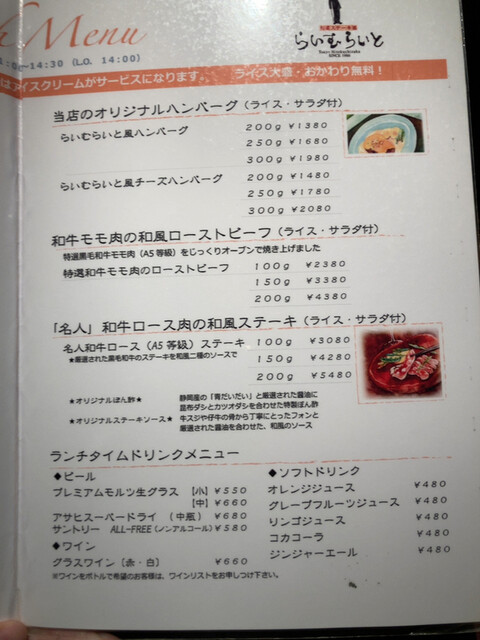 Menu
1:00~14:30 (LO. 14:00)
和風ステーキ酒
らいむらいと
SINCE 1980
はアイスクリームがサービスになります。 ライス大盛・おかわり無料！
当店のオリジナルハンバーグ（ライス・サラダ付）
らいむらいと風ハンバーグ 200g ¥1380
250g ¥1680
300g ¥1980
らいむらいと風チーズハンバーグ 200g ¥1480
250g ¥1780
300g ¥2080
和牛モモ肉の和風ローストビーフ（ライス・サラダ付）
特選黒毛和牛モモ肉（A5等級）をじっくりオーブンで焼き上げました
特選和牛モモ肉のローストビーフ 100g ¥2380
150g ¥3380
200g ¥4380
「名人」和牛ロース肉の和風ステーキ（ライス・サラダ付）
名人和牛ロース（A5等級）ステーキ 100g ¥3080
★厳選された黒毛和牛のステーキを和風二種のソースで 150g ¥4280
200g ¥5480
★オリジナルぽん酢★ 静岡産の「青だいだい」と厳選された醤油に
昆布ダシとカツオダシを合わせた特製ぽん酢
★オリジナルステーキソース★ 牛スジや仔牛の骨から丁寧にとったフォンと
厳選された醤油を合わせた、和風のソース
ランチタイムドリンクメニュー
◆ビール
プレミアムモルツ生グラス 【小】¥550
【中】¥660
アサヒスーパードライ （中瓶）¥680
サントリー ALL-FREE（ノンアルコール）¥580
◆ワイン
グラスワイン〔赤・白〕 ¥660
※ワインをボトルで希望のお客様は、ワインリストをお申しつけ下さい。
◆ソフトドリンク
オレンジジュース ¥480
グレープフルーツジュース ¥480
リンゴジュース ¥480
コカコーラ ¥480
ジンジャーエール ¥480